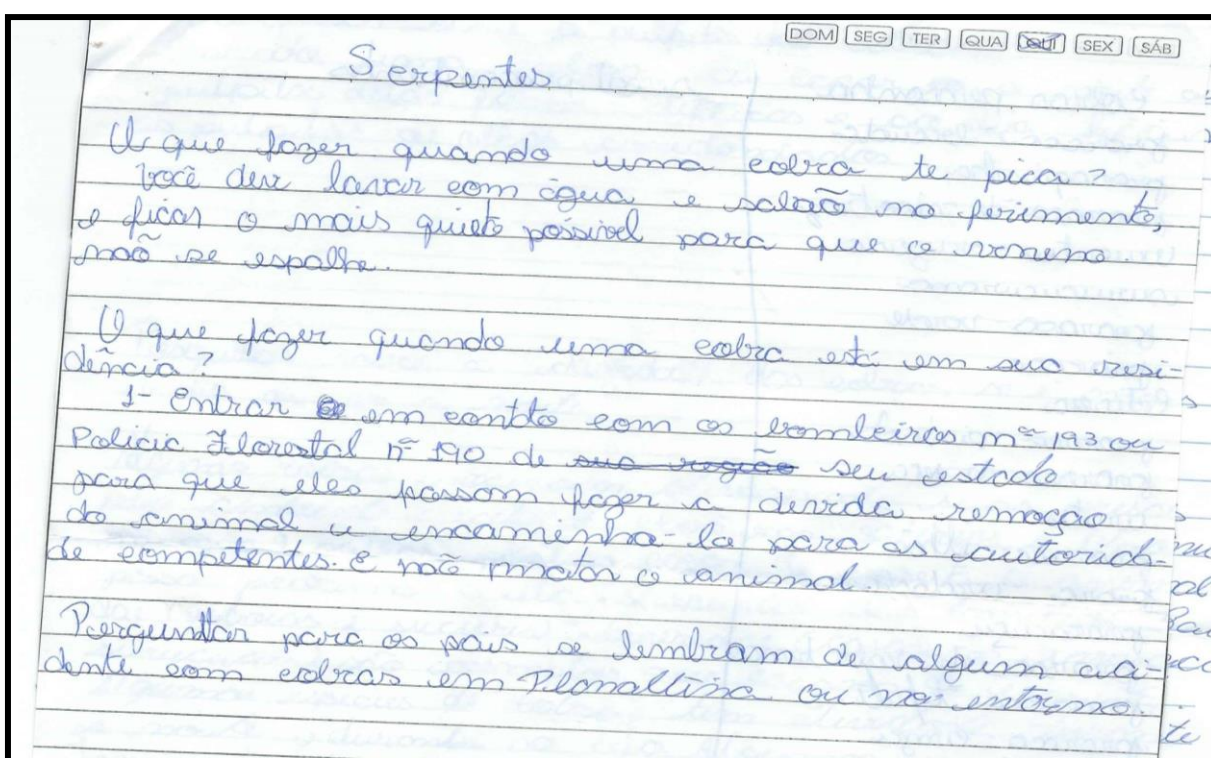 DOM SEG TER QUA QUI SEX SÁB
Serpentes
O que fazer quando uma cobra te pica?
Você deve lavar com água e sabaõ no ferimento,
e ficar o mais quieto possivel para que o veneno
naõ se espalhe.
O que fazer quando uma cobra está em sua resi-
dência?
1- Entrar em contto com os bombeiros nº 193 ou
Policia Florestal nº 190 de sua região seu estado
para que eles possam fazer a devida remoção
do animal e encaminha-la para as autorida-
de competentes. E não matar o animal.
Perguntar para os pais se lembram de algum aci-
dente com cobras em Planaltina ou no entorno.
te